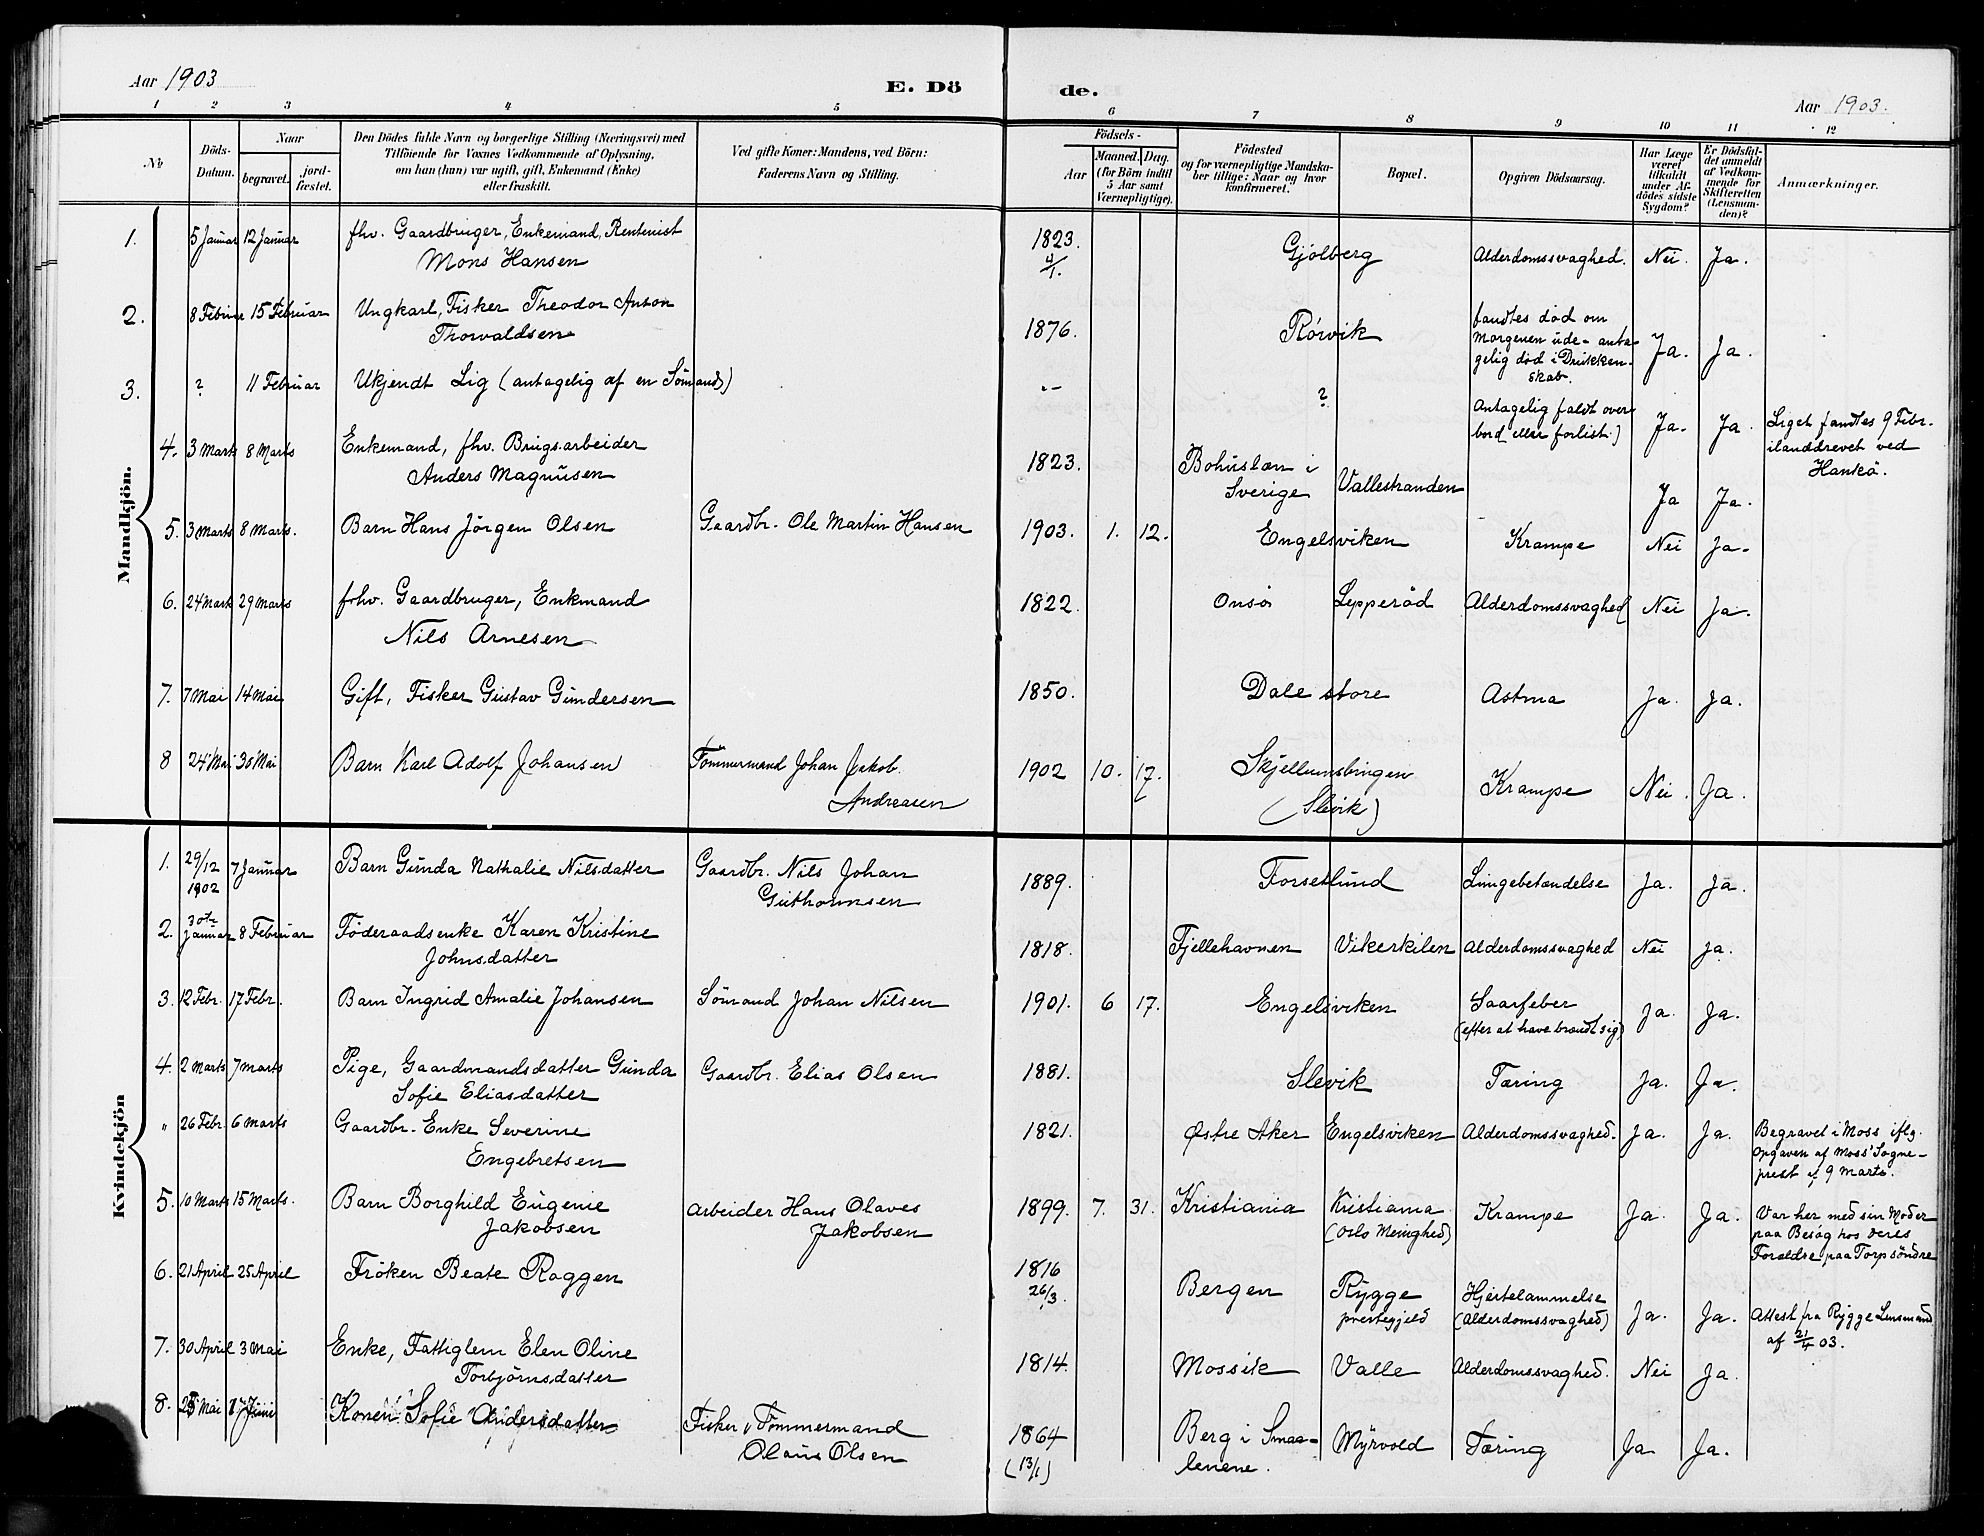 Aar 1903
E. Dö
de.
Aar 1903.
1 2 3 4 5 6 7 8 9 10 11 12
No
Döds-
Datum.
Naar
begravet.
jord-
fæstet.
Den Dödes fulde Navn og borgerlige Stilling (Næringsvei) med
Tilföiende for Voxnes Vedkommende af Oplysning,
om han (hun) var ugift, gift, Enkemand (Enke)
eller fraskilt.
Ved gifte Koner: Mandens, ved Börn:
Faderens Navn og Stilling.
Födsels-
Aar
Maaned.
Dag.
(for Börn indtil
5 Aar samt
Værnepligtige).
Födested
og for værnepligtige Mandska-
ber tillige: Naar og hvor
konfirmeret.
Bopæl.
Opgiven Dödsaarsag.
Har Læge
været
tilkaldt
under Af-
dödes sidste
Sygdom?
Er Dödsfal-
det anmeldt
af Vedkom-
mende for
Skifteretten
(Lensman-
den)?
Anmærkninger.
Mandkjön.
1. 5 Januar 12 Januar fhv. Gaardbruger, Enkemand, Rentenist
Mons Hansen
1823.
4/1.
Gjölberg Alderdomssvaghed. Nei. Ja.
2. 8 Februar 15 Februar Ungkarl, Fisker Theodor Anton
Thorvaldsen
1876. Rörvik
fandtes död om
Morgenen ude - anta-
gelig död i Drukken-
skab.
Ja. Ja.
3. ? 11 Februar Ukjendt Lig (antagelig af en Sömand)
„- ?
Antagelig faldt over-
bord eller forlist.)
Ja. Ja.
Liget fandtes 9 Febr.
ilanddrevet ved
Hankö.
4. 3 Marts 8 Marts Enkemand, fhv. Brugsarbeider
Anders Magnusen
1823. Bohuslæn i
Sverige
Vallestranden Ja Ja.
5. 3 Marts 8 Marts. Barn Hans Jörgen Olsen Gaardbr. Ole Martin Hansen 1903. 1. 12. Engelsviken Krampe Nei Ja.
6. 24 Marts 29 Marts fhv. Gaardbruger, Enkmand
Nils Arnesen
1822. Onsö Lepperöd Alderdomssvaghed Nei Ja.
7. 7 Mai 14 Mai Gift, Fisker Gustav Gundersen 1850. Dale store Astma Ja. Ja.
8 24 Mai 30 Mai Barn Karl Adolf Johansen Tömmermand Johan Jakob.
Andreasen
1902 10. 17. Skjellumsbingen
(Slevik)
Krampe Nei. Ja.
Kvindekjön
1. 29/12
1902
7 Januar Barn Gunda Nathalie Nilsdatter Gaardbr. Nils Johan
Guthormsen
1889. Forsetlund Lungebetændelse Ja. Ja.
2. 30te
Januar
8 Februar Föderaadsenke Karen Kristine
Johnsdatter
1818. Fjellehavnen Vikerkilen Alderdomssvaghed Nei Ja.
3. 12 Febr. 17 Febr. Barn Ingrid Amalie Johansen Sömand Johan Nilsen 1901. 6 17. Engelsviken Saarfeber
(efter at have brændt sig)
Ja. Ja.
4. 2 Marts 7 Marts Pige, Gaardmandsdatter Gunda
Sofie Eliasdatter
Gaardbr. Elias Olsen 1881. Slevik Tæring Ja. Ja.
„ 26 Febr. 6 Marts Gaardbr. Enke Severine
Engebretsen
1821. Østre Aker Engelsviken Alderdomssvaghed. Ja. Ja.
Begravet i Moss iflg.
opgaven af Moss' Sogne-
prest af 9 Marts.
5. 10 Marts 15 Marts. Barn Borghild Eugenie
Jakobsen
Arbeider Hans Olaves
Jakobsen
1899. 7. 31. Kristiania Kristiania
(Oslo Menighed)
Krampe Ja. Ja.
Var her med sin Moder
paa Besög hos deres
Forældre paa Torp söndre
6. 21 April 25 April Fröken Beate Roggen 1816
26/3.
Bergen Rygge
prestegjeld
Hjertelammelse
(Alderdomssvaghed)
Ja. Ja.
Attest fra Rygge Lensmand
af 21/4 03.
7. 30 April 3 Mai Enke, Fattiglem Elen Oline
Torbjörnsdatter
1814. Mossik Valle Alderdomssvaghed. Nei Ja.
8. Mai Juni Konen Sofie Andersdatter Fisker, Tömmermand
Olaus Olsen
1864
(13/1)
Berg i Smaa-
lenene.
Myrvold Tæring Ja Ja.